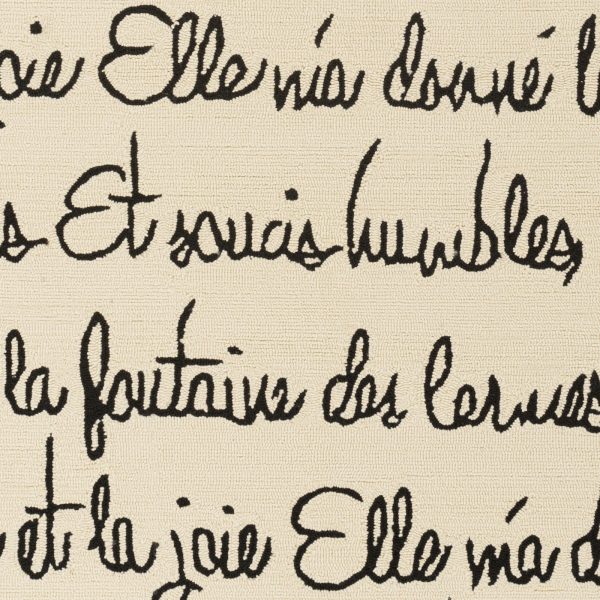 oie Elle m'a donné l
s Et soucis humbles,
la fontaine des larmes
et la joie Elle m'a d